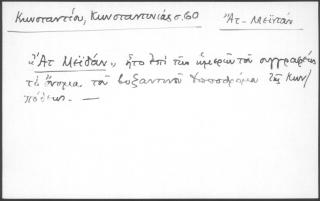 Κωνσταντίου, Κωνσταντινιάς σ. 60 Ἀτ-Μεϊτάν
«Ἀτ Μεϊδάν», ἦτο ἐπὶ τῶν ἡμερῶν τοῦ συγγραφέως
τὸ ὄνομα τοῦ βυζαντινοῦ Ἱπποδρόμου τῆς Κων/
πόλεως. —